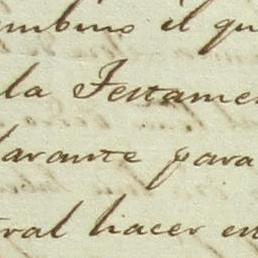 ambino il qu
la Testame
larante para
tral hacer en